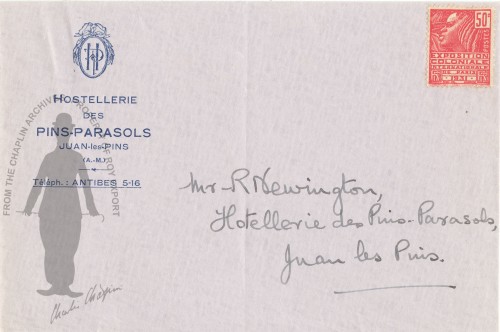 HP
HOSTELLERIE
DES
PINS-PARASOLS
JUAN-les-PINS
(A.-M.)
Téléph. : ANTIBES 5-16
50c
POSTES
EXPOSITION
COLONIALE
INTERNATIONALE
PARIS
1931
Mr R Newington,
Hotellerie des Pins-Parasols,
Juan les Pins.
FROM THE CHAPLIN ARCHIVES PROPERTY OF ROY EXPORT
Charlie Chaplin